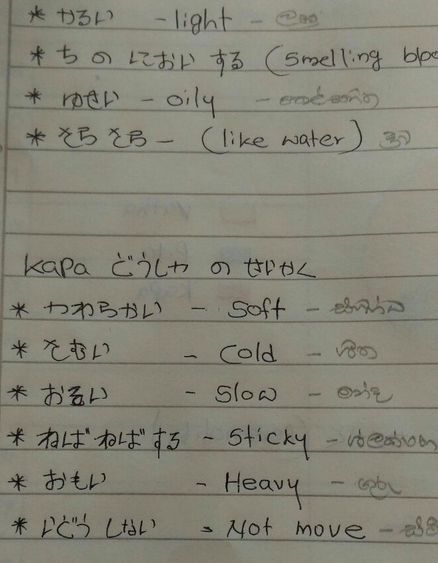 * かるい - light -
* ちの におい する (smelling
* ゆさい - oily -
* さらさら - (like water)
Kapa どうしゃ の せいかく
* やわらかい - Soft -
* さむい - Cold - ශීත
* おるい - Slow - මන්ද
* ねばねばする - Sticky -
* おもい - Heavy - ගුරු
* いどう しない - Not move -